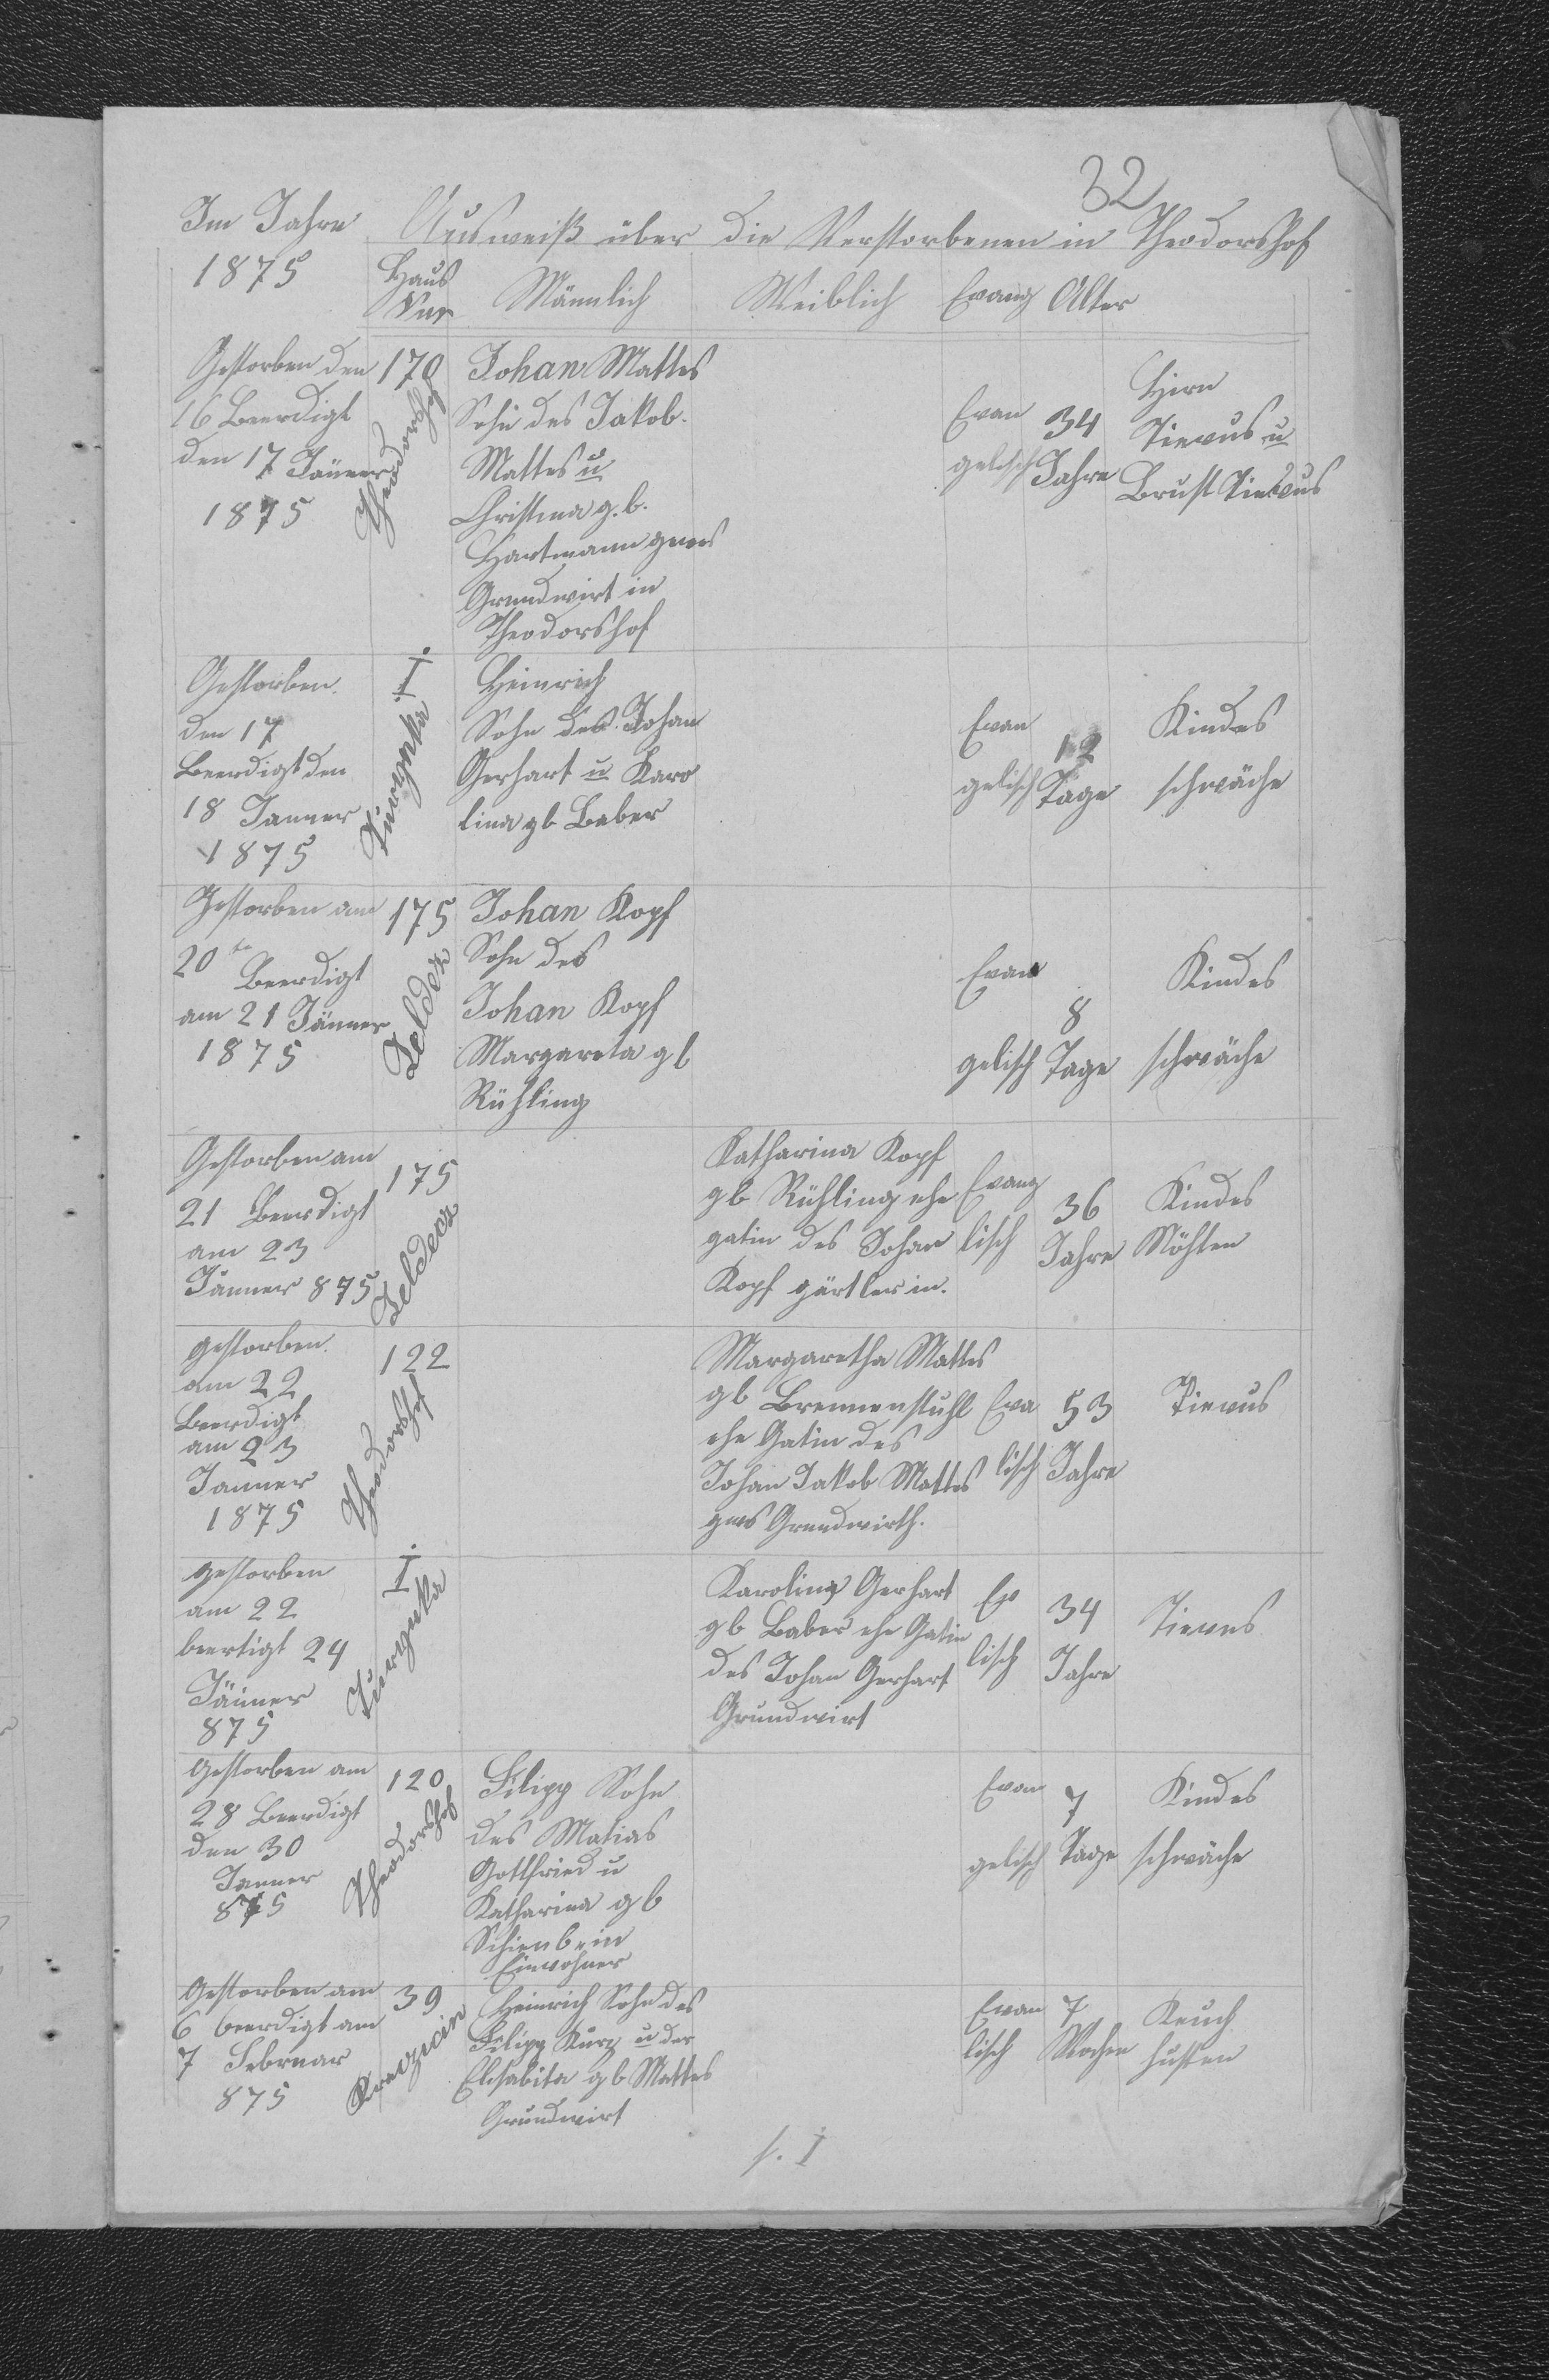 32
Im Jahre
1875
Ausweiß über die Verstorbenen in Theodorshof
Haus
Nur
Männlich
Weiblich
Evang
Alter
Gestorben den
16 Beerdigt
den 17 Jänner
1875
170
Theodorshof
Johan Mattes
Sohn des Jakob
Mattes u
Christina g. b.
Hartmann gewes
Grundwirt in
Theodorshof
Evan
gelisch
34
Jahre
Hirn
Tievus u
Brust Tievus
Gestorben
den 17
Beerdigt den
18 Janner
1875
I
Heinrich
Sohn des Johan
Gerhart u Karo
lina gb Baber
Evan
gelisch
12
Tage
Kindes
schwäche
Gestorben am
20ten
Beerdigt
am 21 Jänner
1875
175
Zeldez
Johan Kopf
Sohn des
Johan Kopf
Margareta gb
Rühling
Evan
gelisch
8
Tage
Kindes
schwäche
Gestorben am
21 Beerdigt
am 23
Jänner 875
175
Zeldecz
Katharina Kopf
gb Rühling ehe
gatin des Johan
Kopf gärtlerin.
Evang
lisch
36
Jahre
Kindes
Nöhten
gestorben
am 22
Beerdigt
am 23
Janner
1875
122
Theodorshof
Margaretha Mattes
gb Brennenstuhl
ehe Gatin des
Johan Jakob Mattes
gews Grundwirth.
Eva
lisch
53
Jahre
Tievus
gestorben
am 22
beertigt 24
Jänner
875
I
Karolina Gerhart
gb Baber ehe Gatin
des Johan Gerhart
Grundwirt
Ev
lisch
34
Jahre
Tievus
gestorben am
28 Beerdigt
den 30
Janner
875
120
Theodorshof
Filipp Sohn
des Matias
Gottfried u
Katharina gb
Schienbein
Einwohner
Evan
gelisch
7
Tage
Kindes
schwäche
Gestorben am
6 beerdigt am
7 Februar
875
39
Heinrich Sohn des
Filipp Kurz u der
Elisabita gb Mattes
Grundwirt
Evan
lisch
7
Wochen
Keuch
husten
/. I